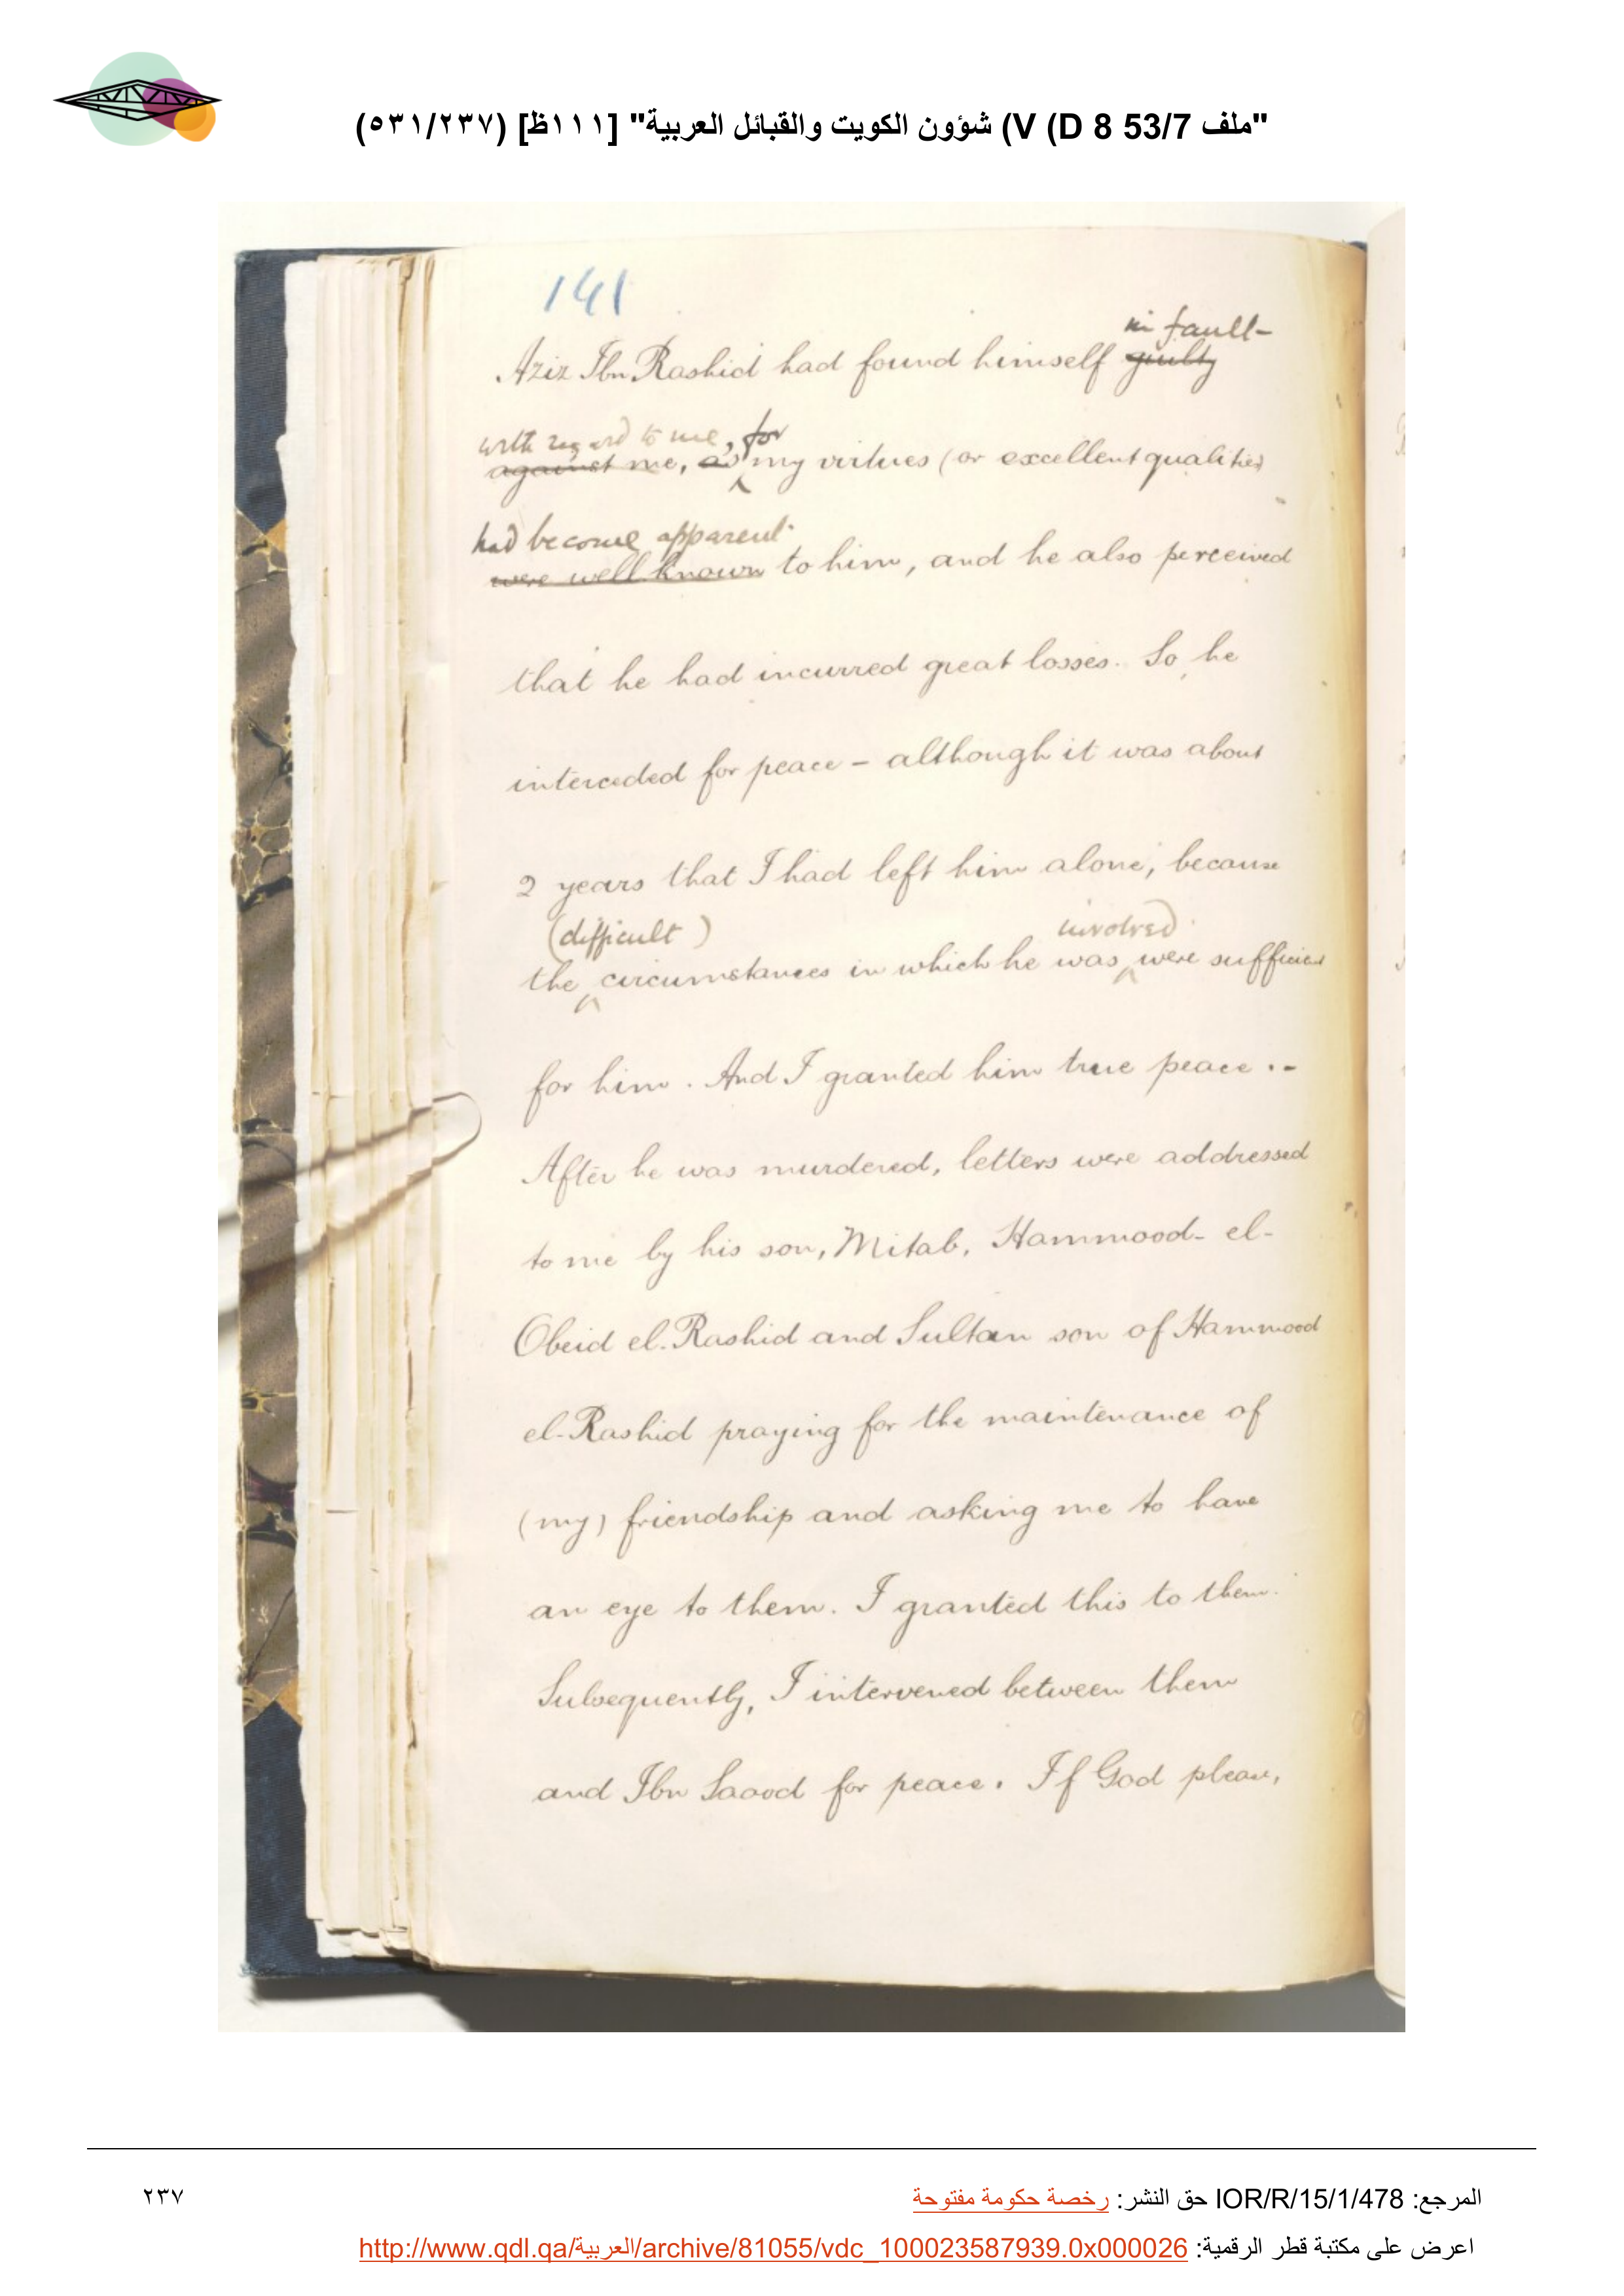 "ملف 53/7 V (D 8) شؤون الكويت والقبائل العربية" [١١١ظ] (٥٣١/٢٣٧)
141
in fault-
Aziz Ibn Rashid had found himself guilty
with regard to me, for
against me, as my virtues (or excellent qualities
had become apparent
were well known to him, and he also perceived
that he had incurred great losses. So, he
interceded for peace - although it was about
2 years that I had left him alone, because
(difficult) involved
the circumstances in which he was were sufficient
for him. And I granted him true peace.-
After he was murdered, letters were addressed
to me by his son, Mitab, Hammood-el-
Obeid el-Rashid and Sultan son of Hammood
el-Rashid praying for the maintenance of
(my) friendship and asking me to have
an eye to them. I granted this to them.
Subsequently, I intervened between them
and Ibn Saood for peace. If God please,
المرجع: IOR/R/15/1/478 حق النشر: رخصة حكومة مفتوحة
٢٣٧
اعرض على مكتبة قطر الرقمية: http://www.qdl.qa/العربية/archive/81055/vdc_100023587939.0x000026